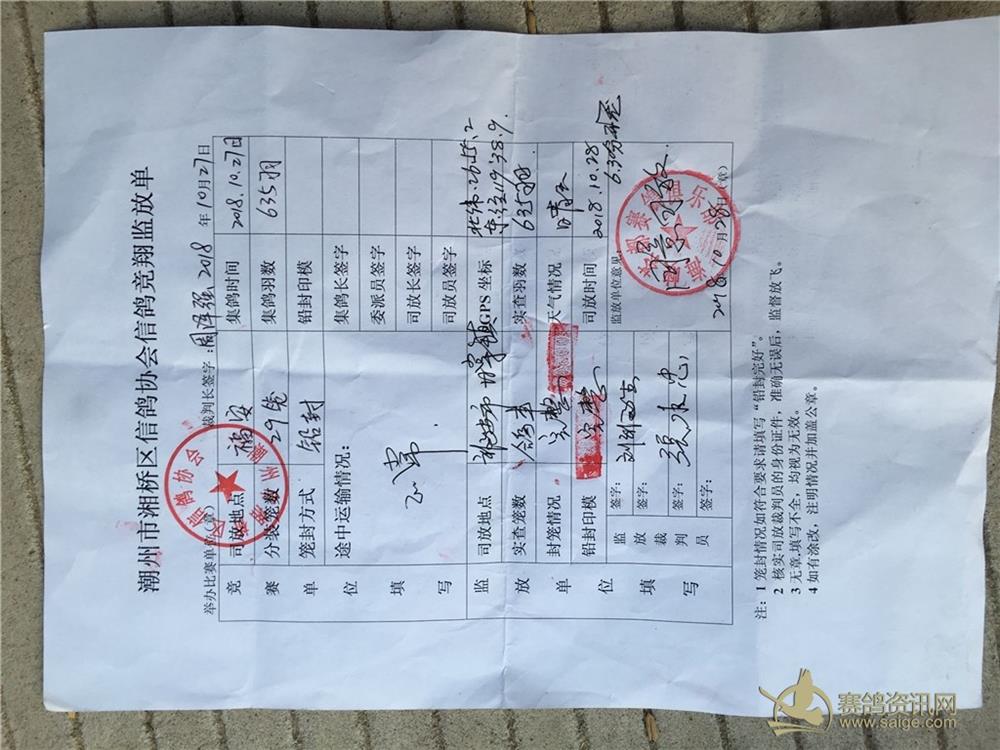 潮州市湘桥区信鸽协会信鸽竞翔监放单
举办比赛单位(章) 裁判长签字: 2018 年10月27日
竞赛单位填写
司放地点 福安 集鸽时间 2018.10.27日
分装笼数 29笼 集鸽羽数 635羽
笼封方式 铅封 铅封印模
途中运输情况: 正常. 集鸽长签字
委派员签字
司放长签字
司放员签字
监放单位填写
司放地点 GPS 坐标 北纬 东经119.38.9.
实查笼数 实查羽数 635羽
封笼情况 完整 天气情况 晴
铅封印模 完整 司放时间 2018.10.28
监放裁判员 签字: 监放单位意见: 同意开放
签字: 张水忠
签字:
签字: 2018 10 月 28 日 (章)
注: 1 笼封情况如符合要求请填写“铅封完好”。
2 核实司放裁判员的身份证件,准确无误后,监督放飞。
3 无章,填写不全,均视为无效。
4 如有涂改,注明情况并加盖公章。
赛鸽资讯网
www.saige.com